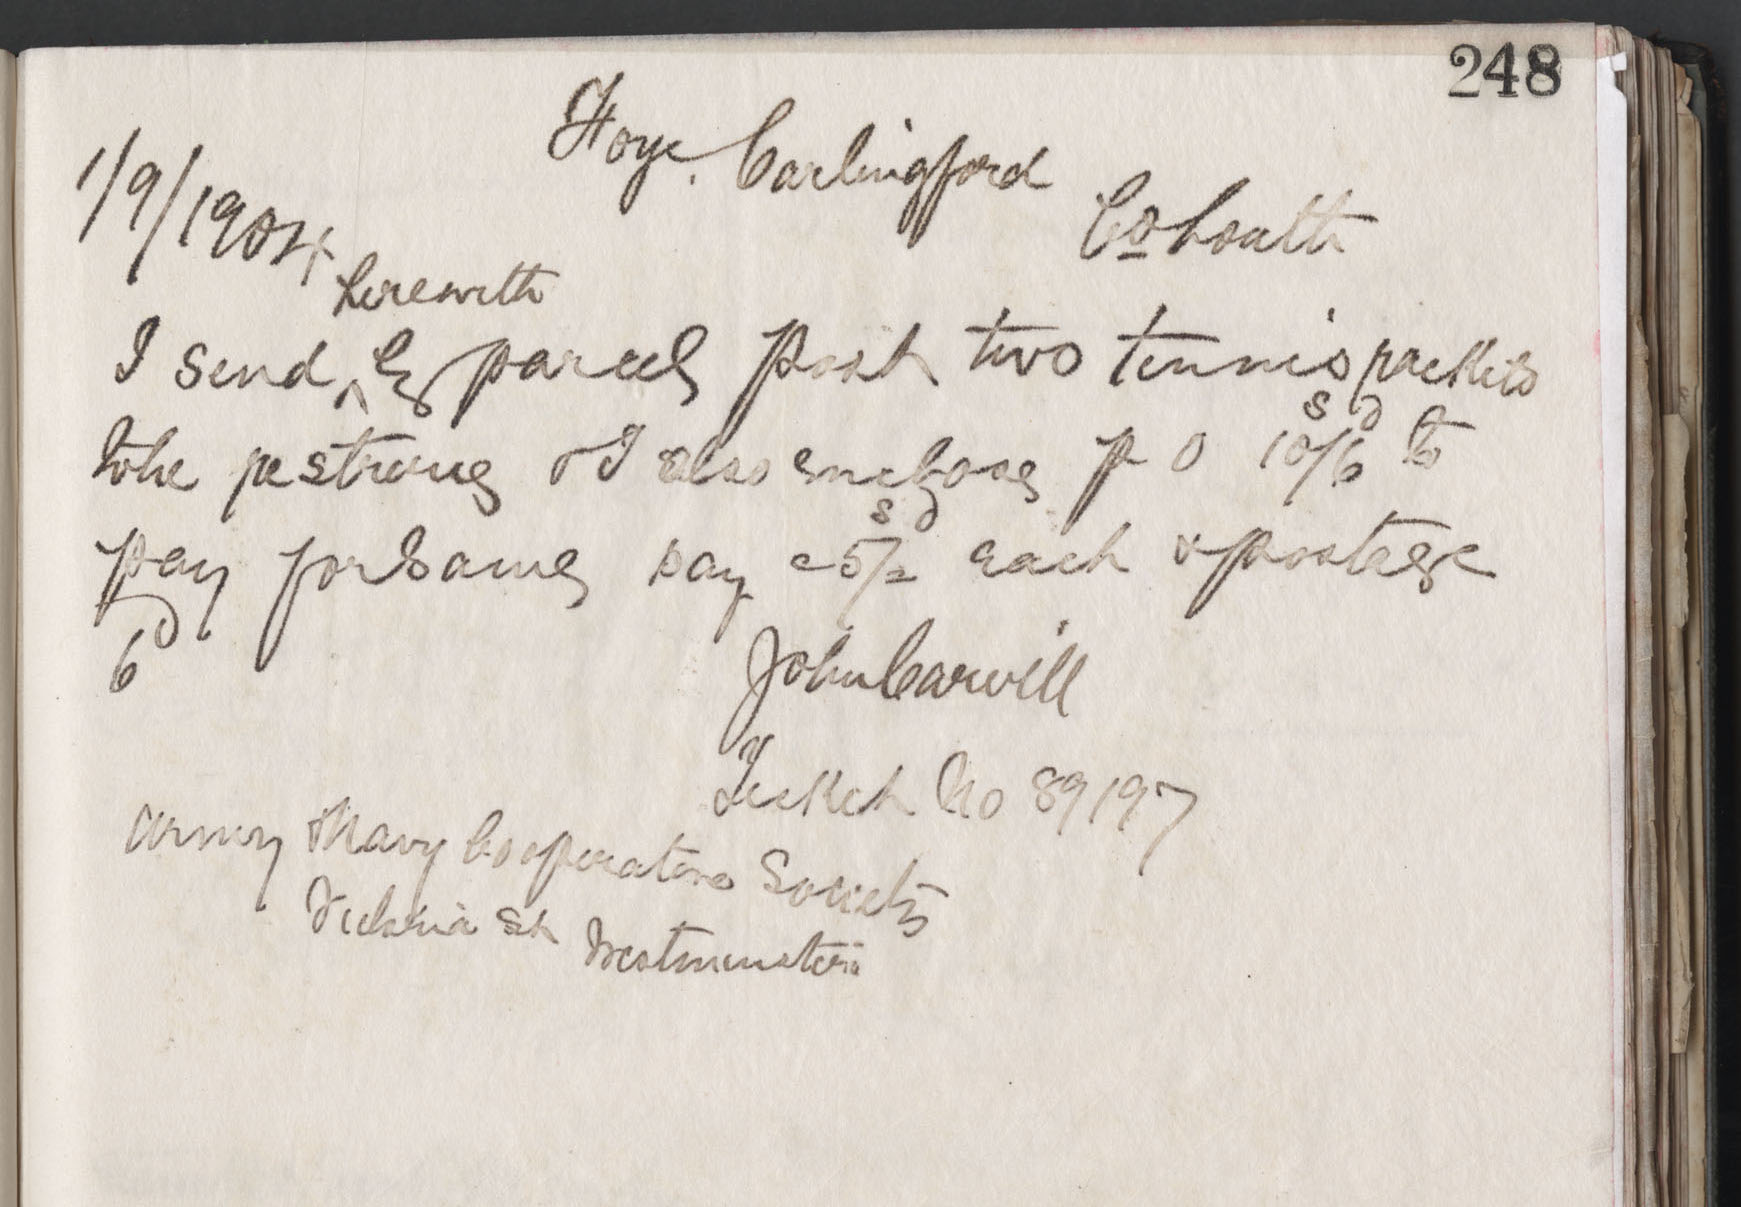 248
Foye, Carlingford
Co Louth
1/9/1904
herewith
I send ^ by parcel post two tennis rackets
to be restrung & I also enclose P O 10/6 s d to
pay for same say 5/= s d each & postage
6d
John Carvill
Ticket No 89197
Army & Navy Cooperative Society
Victoria St Westminster